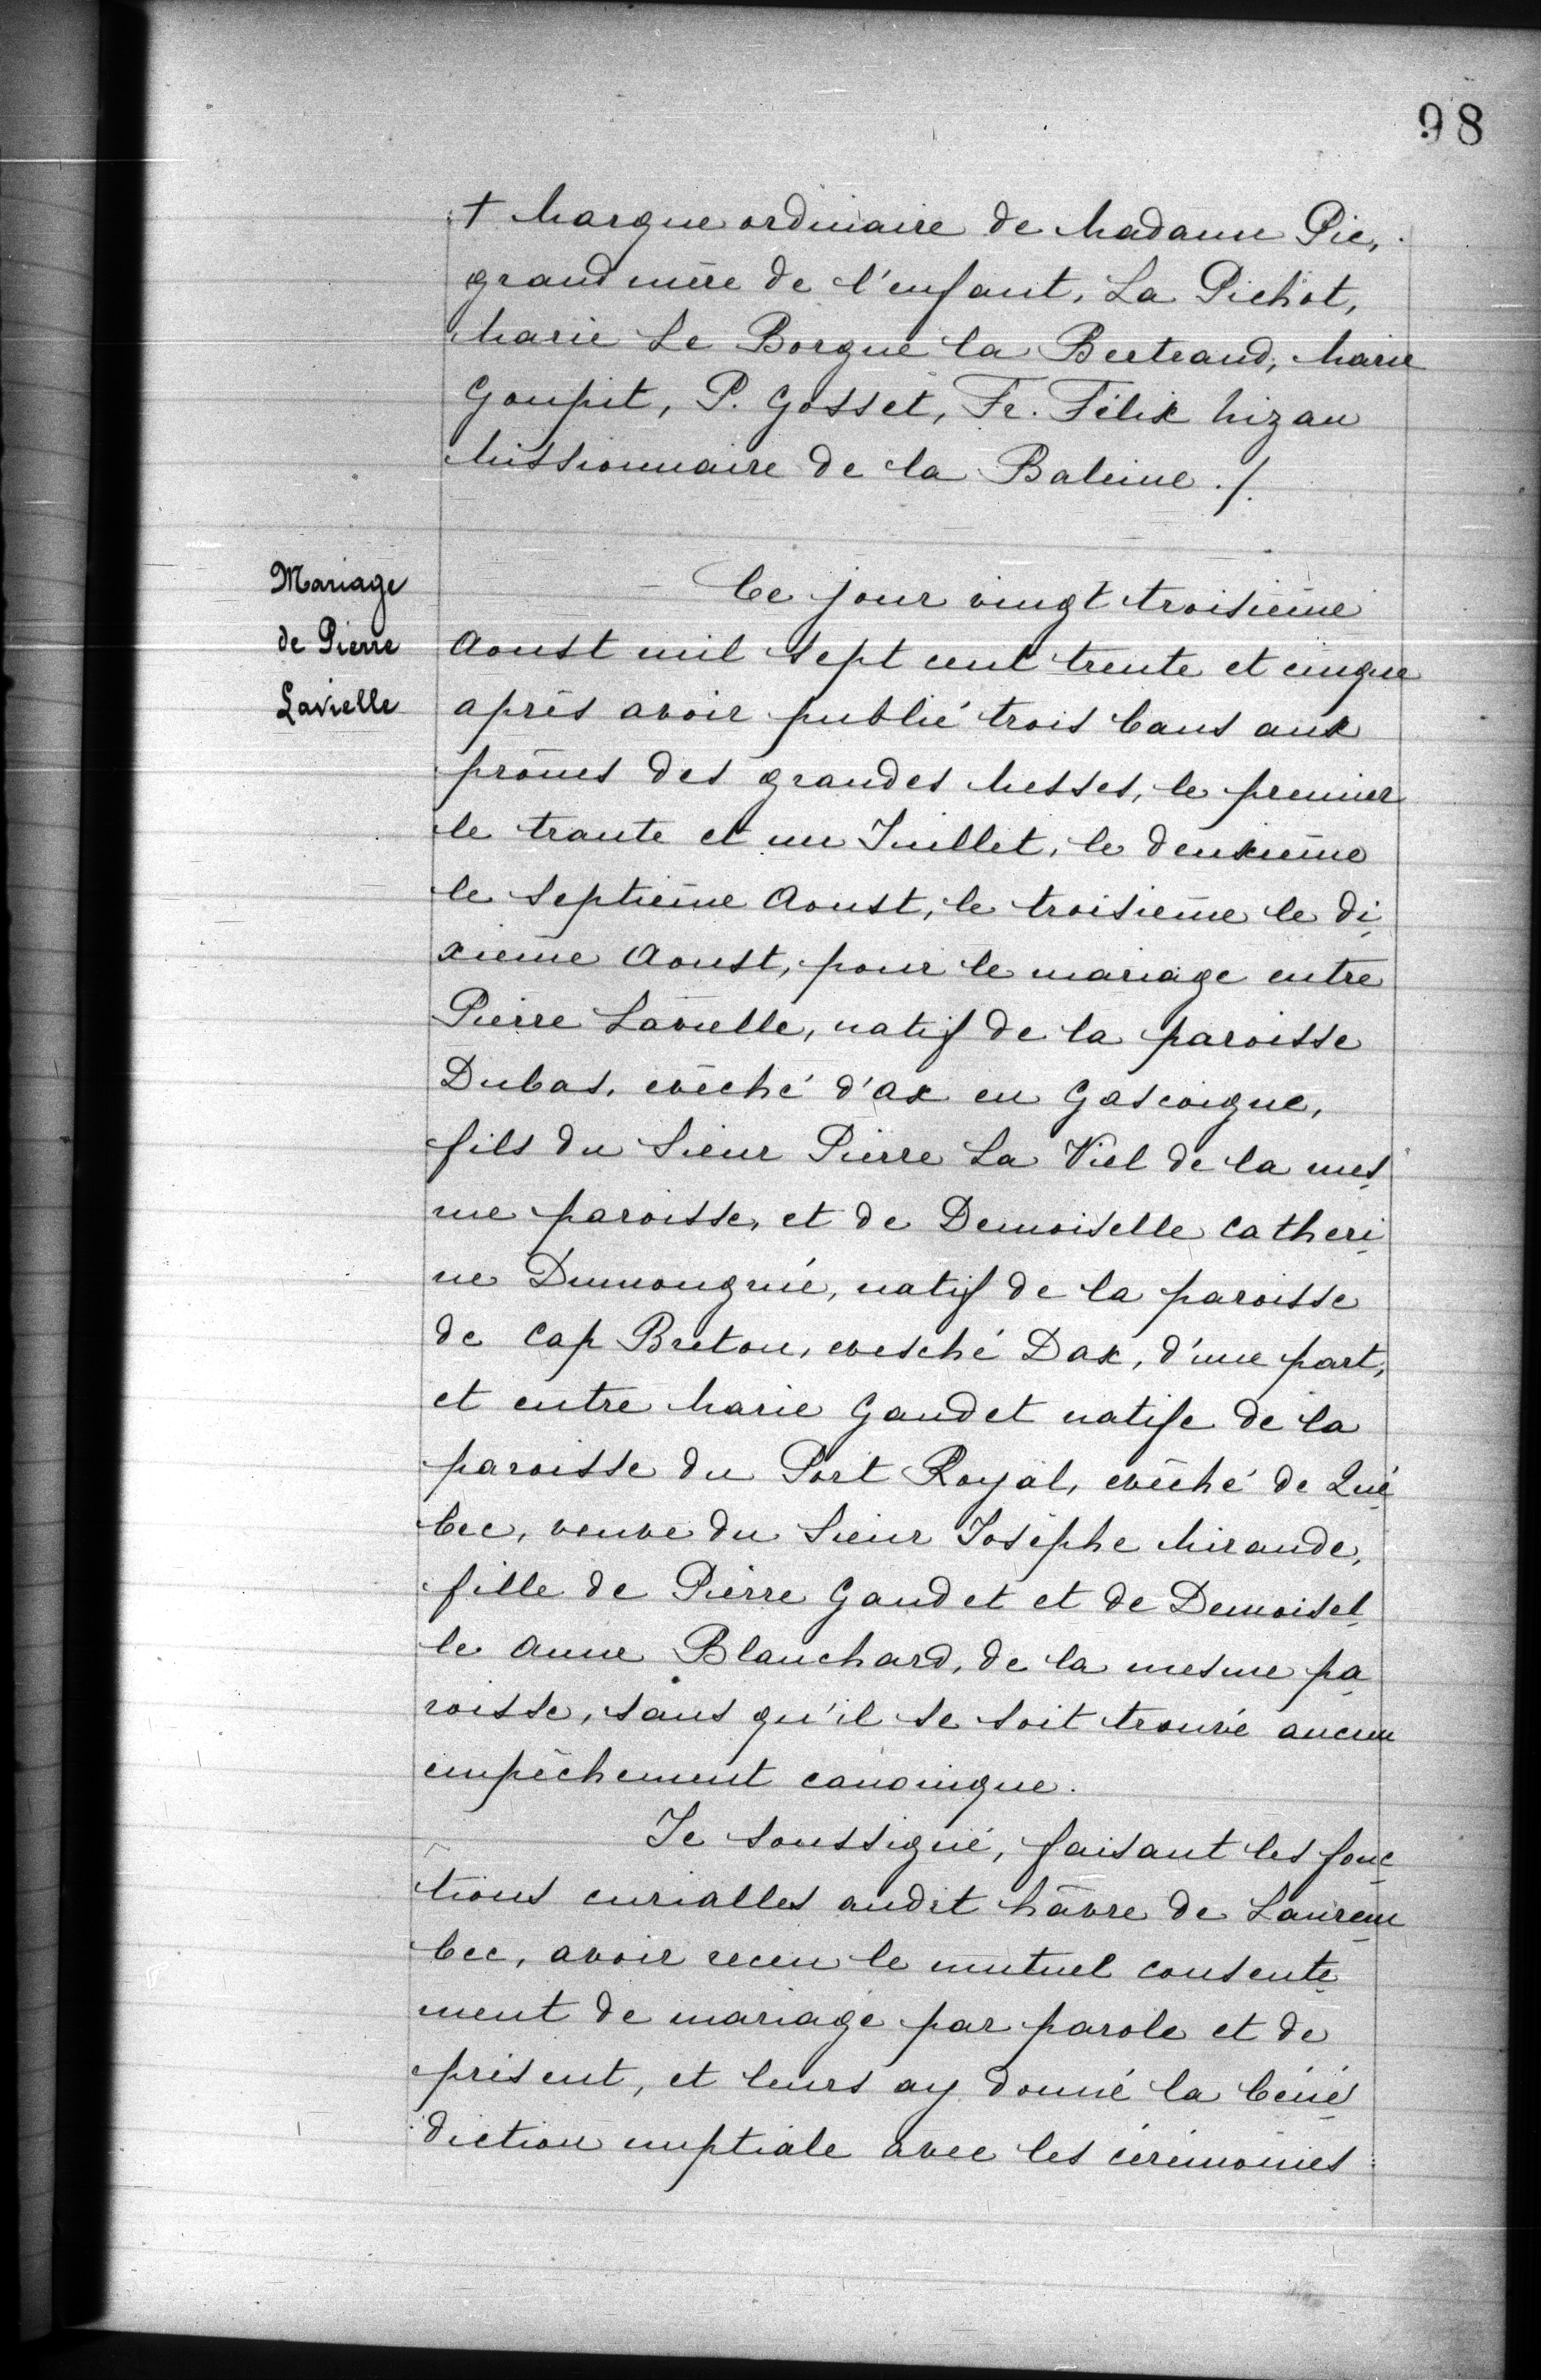 98
+ Marque ordinaire de Madame Pic,
grand mère de l'enfant, La Pichot,
Marie Le Borgne la Bertrand, Marie
Goupit, P. Gosset, Fr. Félix hizan
Missionnaire de la Baleine ./.
Mariage
de Pierre
Lavielle
Ce jour vingt troisième
Aoust mil sept cent trente et cinque
après avoir publié trois bans aux
prônes des grandes Messes, le premier
le trante et un Juillet, le deuxième
le septième Aoust, le troisième le di
xieme Aoust, pour le mariage entre
Pierre Lavielle, natif de la paroisse
Dubas, evêché d'ax en Gascoigne,
fils du Sieur Pierre La Viel de la mes
me paroisse, et de Demoiselle Catheri
ne Dumongnié, natif de la paroisse
de Cap Breton, evesché Dax, d'une part,
et entre Marie Gaudet natife de la
paroisse du Port Royal, evêché de Qué
bec, veuve du Sieur Josèphe Mirande,
fille de Pierre Gaudet et de Demoisel
le Anne Blanchard, de la mesme pa
roisse, sans qu'il se soit trouvé aucun
empêchement canonique.
Je soussigné, faisant les fonc
tions curialles audit hâvre de Laurem
bec, avoir receu le mutuel consente
ment de mariage par parole et de
présent, et leurs ay donné la béné
diction nuptiale avec les cérémonies